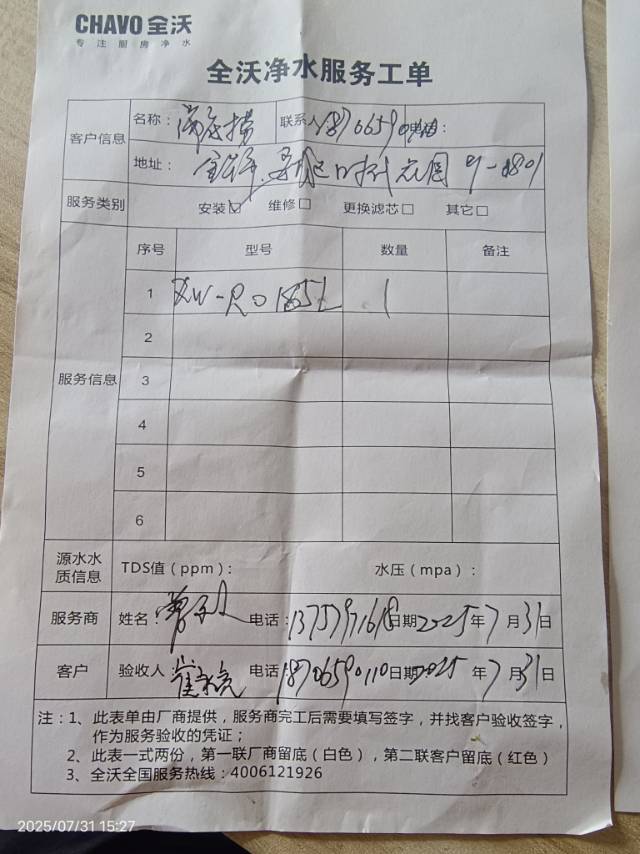 CHAVO 全沃
专注厨房净水
全沃净水服务工单
客户信息
名称： 联系人 电话：
地址： 9-1801
服务类别 安装☑ 维修□ 更换滤芯□ 其它□
服务信息
序号 型号 数量 备注
1 QW-RO 1865L 1
2
3
4
5
6
源水水质信息 TDS值（ppm）： 水压（mpa）：
服务商 姓名： 电话：13759971618 日期 2025年7月31日
客户 验收人 电话 18706590110 日期 2025年7月31日
注：1、此表单由厂商提供，服务商完工后需要填写签字，并找客户验收签字，
作为服务验收的凭证；
2、此表一式两份，第一联厂商留底（白色），第二联客户留底（红色）
3、全沃全国服务热线：4006121926
2025/07/31 15:27